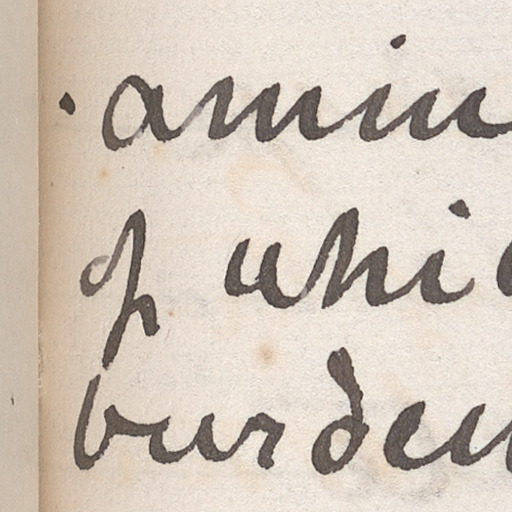 . amin
of whic
burden